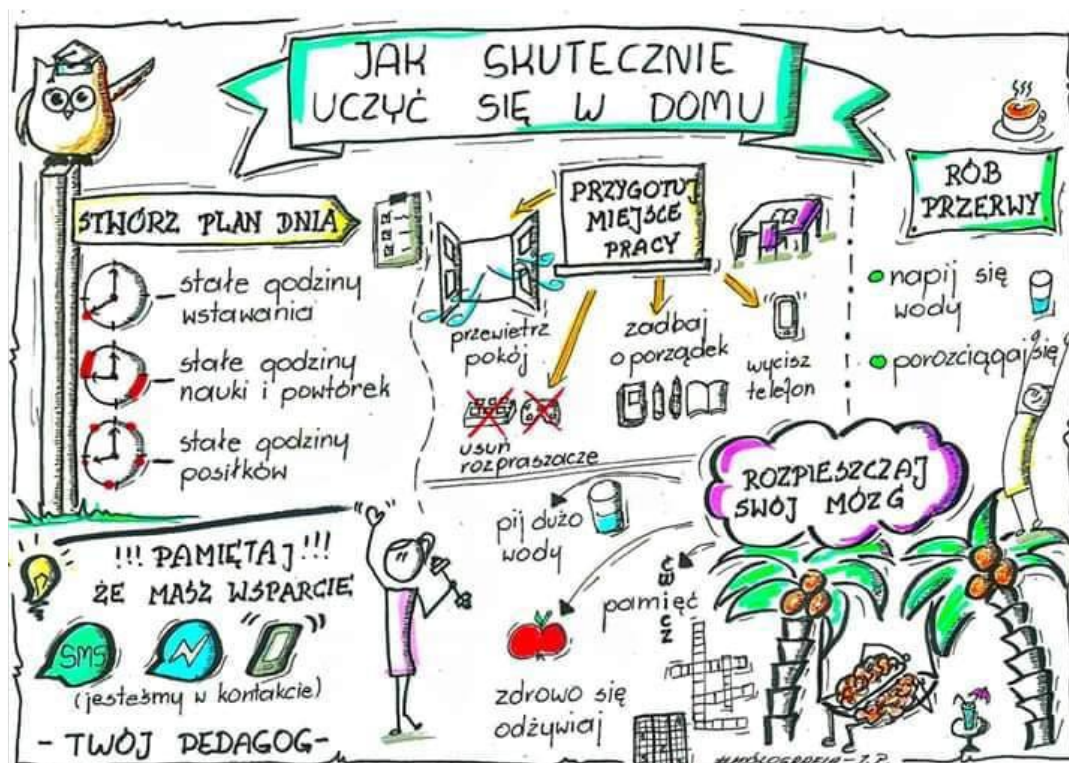 JAK SKUTECZNIE
UCZYĆ SIĘ W DOMU
STWÓRZ PLAN DNIA
stałe godziny
wstawania
stałe godziny
nauki i powtórek
stałe godziny
posiłków
PRZYGOTUJ
MIEJSCE
PRACY
przewietrz
pokój
usuń
rozpraszacze
zadbaj
o porządek
wycisz
telefon
RÓB
PRZERWY
napij się
wody
porozciągaj się
ROZPIESZCZAJ
SWÓJ MÓZG
pij dużo
wody
ćwicz
pamięć
zdrowo się
odżywiaj
!!! PAMIĘTAJ !!!
ŻE MASZ WSPARCIE
SMS
(jesteśmy w kontakcie)
- TWÓJ PEDAGOG-